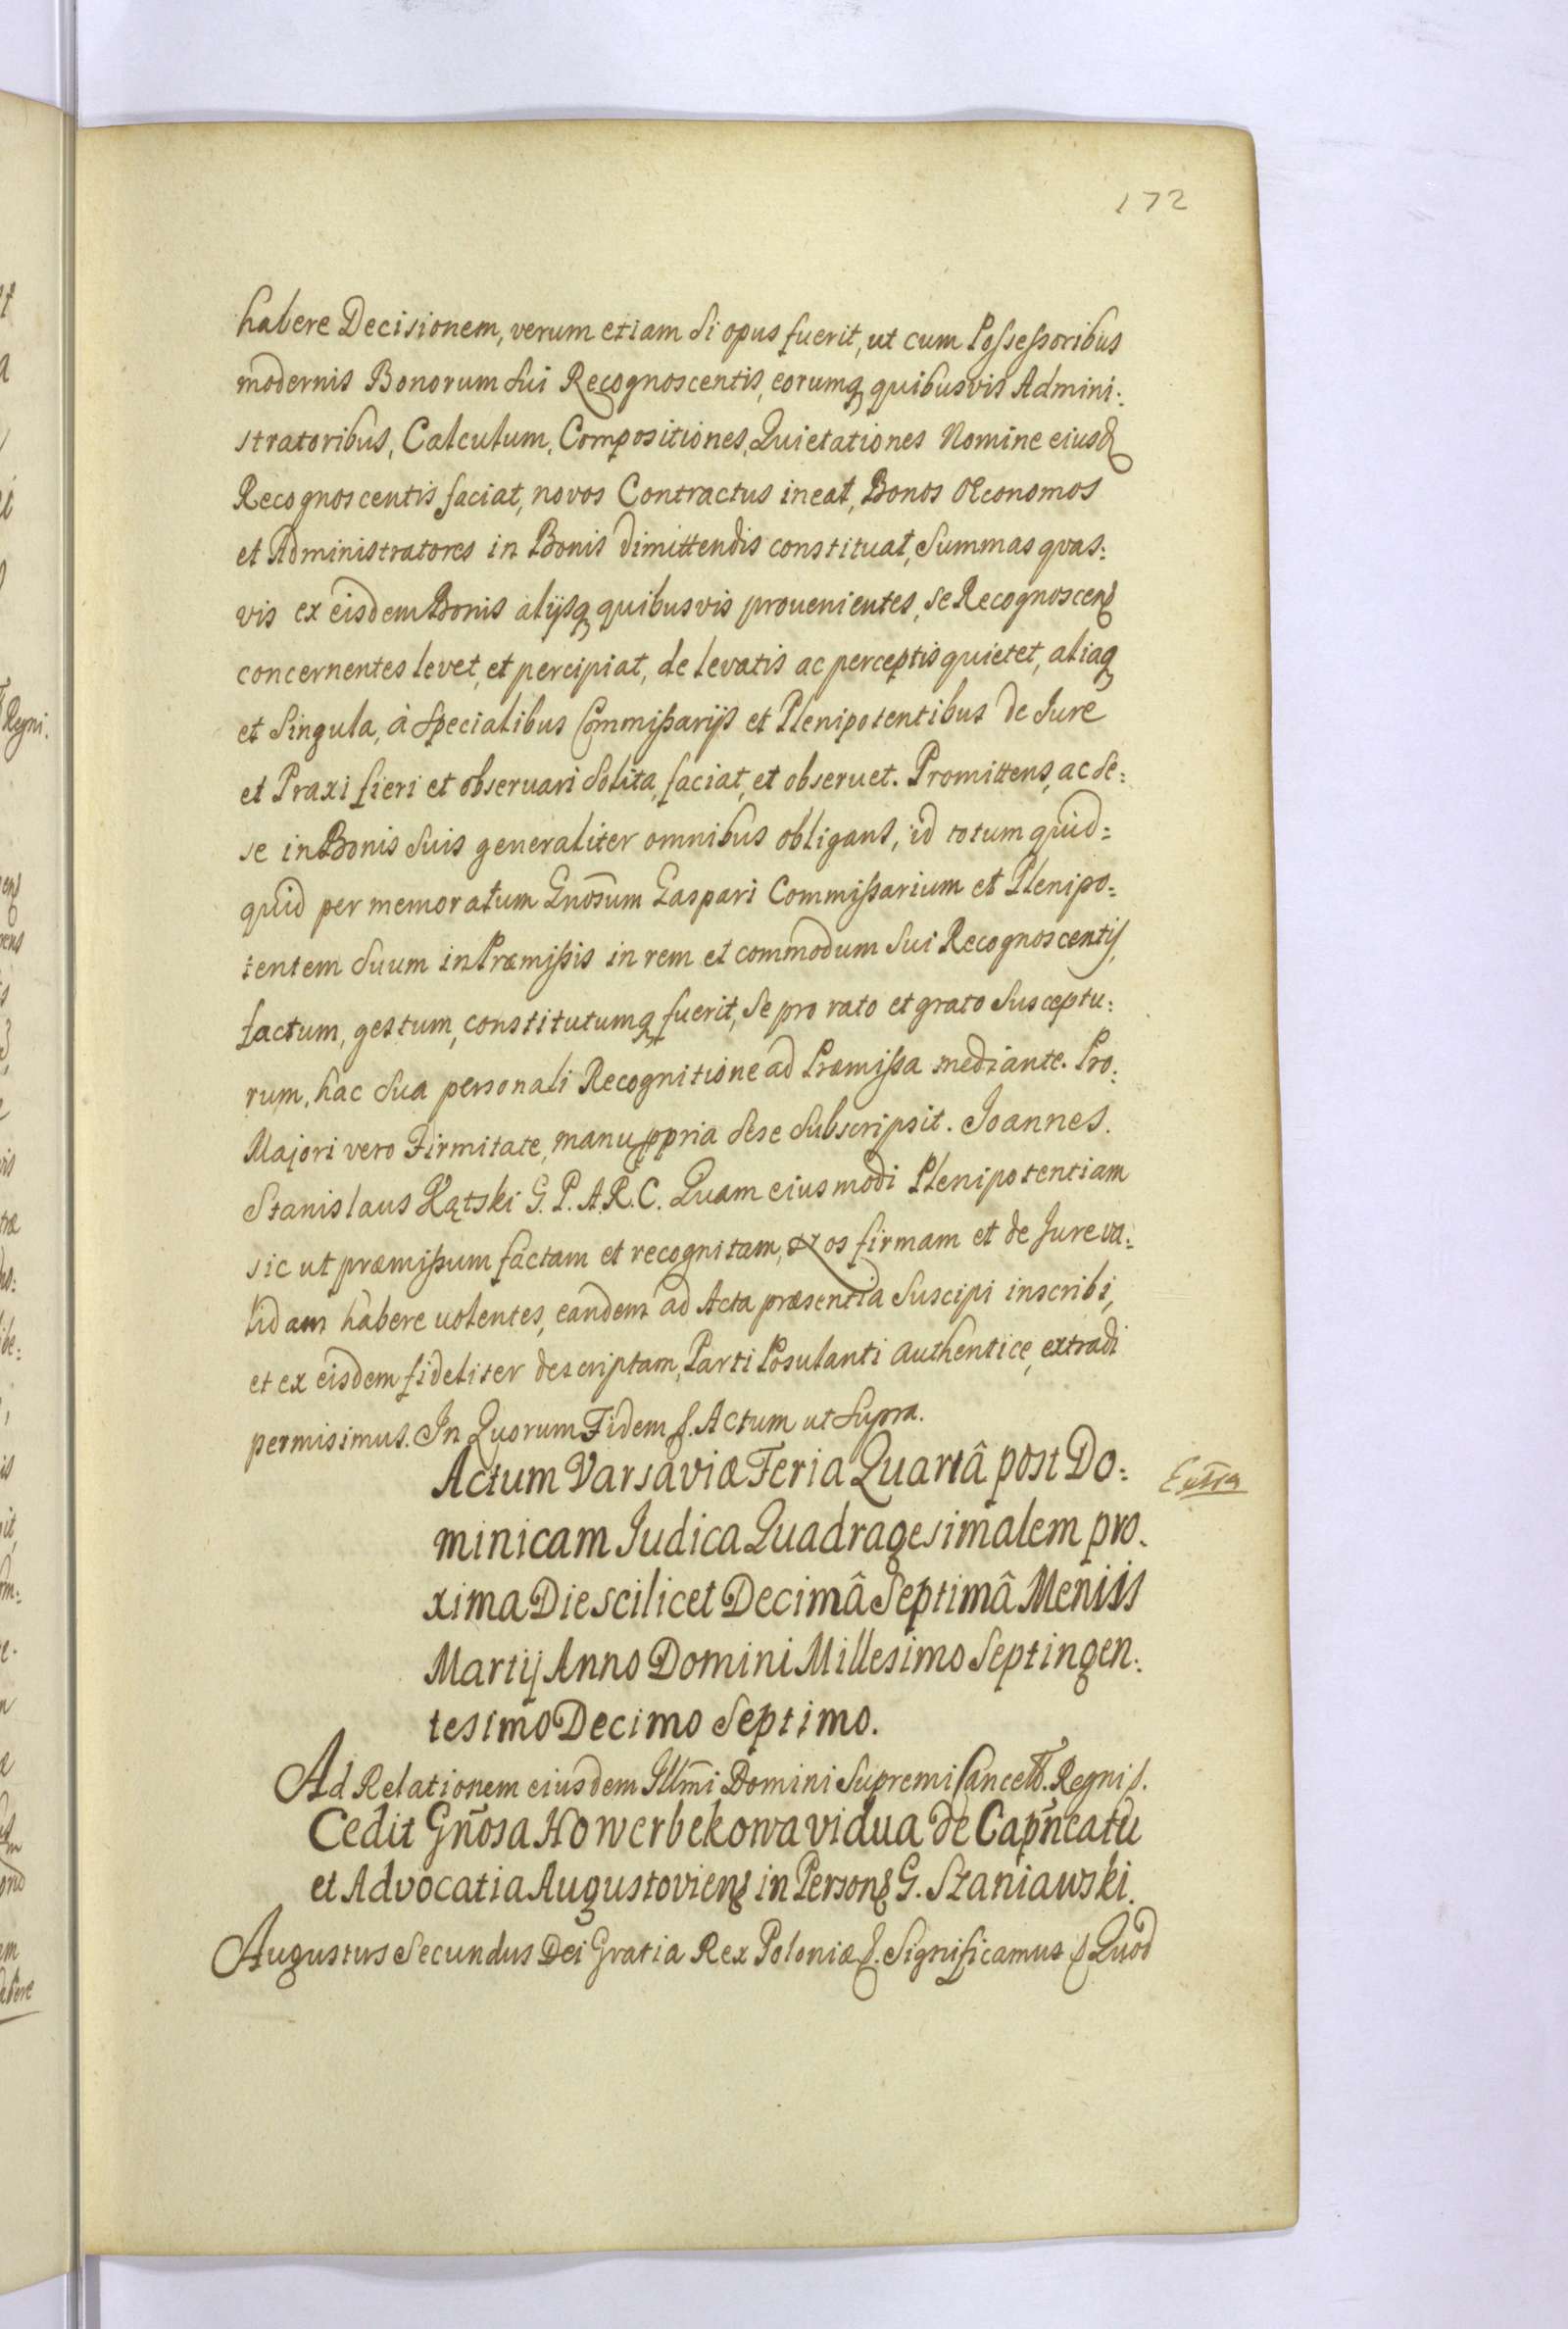 172
habere Decisionem, verum etiam si opus fuerit, ut cum Possessoribus
modernis Bonorum sui Recognoscentis, eorumq quibusvis Admini:
stratoribus, Calculum, Compositiones, Quietationes Nomine eiusd
Recognoscentis faciat, novos Contractus ineat, Bonos Oeconomos
et Administratores in Bonis dimittendis constituat, Summas qvas:
vis ex eisdem Bonis alijsq quibusvis prouenientes, se Recognoscen
concernentes levet, et percipiat, de levatis ac perceptis quietet, aliaq
et singula, à Specialibus Commissarijs et Plenipotentibus de Jure
et Praxi fieri et obseruari solita, faciat, et obseruet. Promittens, ac se:
se in Bonis suis generaliter omnibus obligans, id totum quid=
quid per memoratum Gnosum Gaspari Commissarium et Plenipo:
tentem suum in Præmissis in rem et commodum sui Recognoscentis,
factum, gestum, constitutumq fuerit, se pro rato et grato susceptu:
rum, hac sua personali Recognitione ad Præmissa mediante. Pro:
Majori vero Firmitate, manu ppria sese subscripsit. Joannes.
Stanislaus Kątski G. P. A. R. C. Quam eiusmodi Plenipotentiam
sic ut præmissum factam et recognitam, Nos firmam et de Jure va:
lidam habere uolentes, eandem ad Acta præsentia suscipi inscribi,
et ex eisdem fideliter descriptam, Parti Posulanti authentice, extradi
permisimus. In Quorum Fidem &. Actum ut supra.
Actum Varsaviæ Feria Quartâ post Do:
minicam Judica Quadragesimalem pro.
xima Die scilicet Decimâ Septimâ Mensis
Martij Anno Domini Millesimo Septingen:
tesimo Decimo Septimo.
Ad Relationem eiusdem Illmi Domini Supremi Cancell. Regni &.
Cedit Gnosa Howerbekowa vidua de Capneatu
et Advocatia Augustovien in Person G. Szaniawski.
Augustus Secundus Dei Gratia Rex Poloniæ &. Significamus & Quod